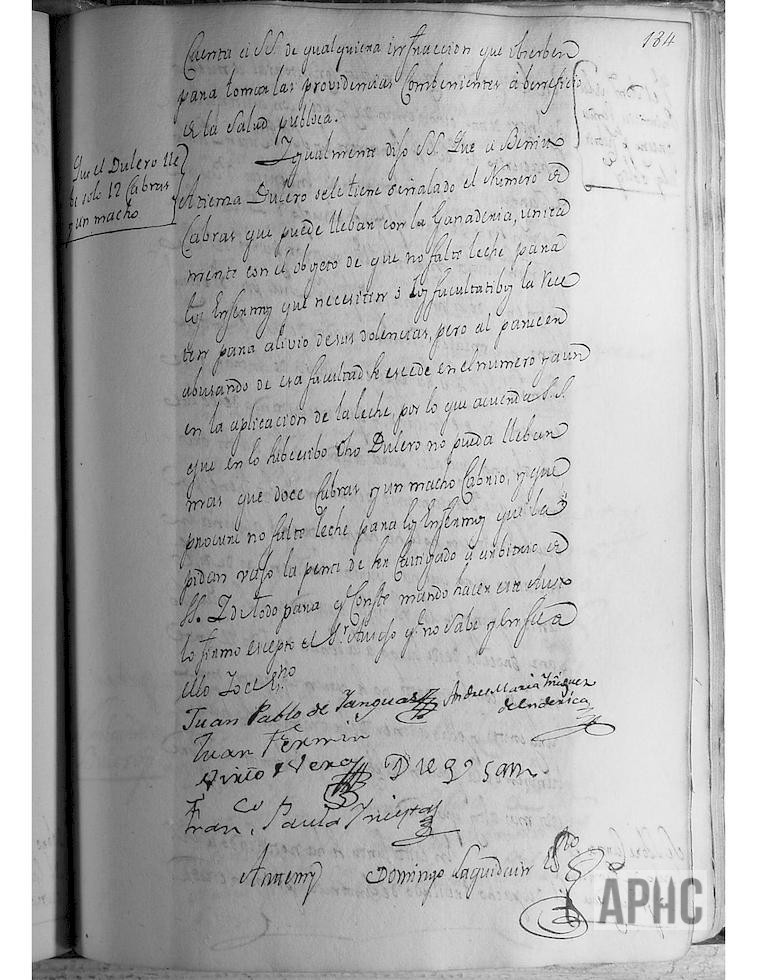 184
Cuenta á SS. de qualquiera infraccion que obserben
para tomar las providencias Combenientes á beneficio
de la Salud publica.
Que el Dulero lle
be solo 12 Cabras
y un macho
Igualmente dijo SS. Que á Benito
Atienza Dulero sele tiene señalado el Numero de
Cabras que puede lleban con la Ganaderia, unica
mente con el objeto de que no falte leche para
los Enfermos que necesiten ó los facultatibos la Rece
ten para alivio desus dolencias, pero al parecer
abusando de esa facultad se escede en el numero y aun
en la aplicacion de la leche, por lo que acuerda S.S.
que en lo subcesibo dho Dulero no pueda lleban
mas que doce Cabras y un macho Cabrio, y que
procure no falte leche para los Enfermos que la
pidan vajo la pena de ser Castigado á arbitrio de
SS. Y de todo para q.e Conste mando hacer este Auto
lo firmo escepto el S.r q.e no Sabe y en fee de
ello Yo el Es.no
Juan Pablo de Yanguas
Andres Maria Iñiguez
de Enderica
Juan Fermin
Pinto y Vera
Diego Sanz
Fran.co Paula Yniesta
Antemy
Domingo Laguidain Es.no
APHC